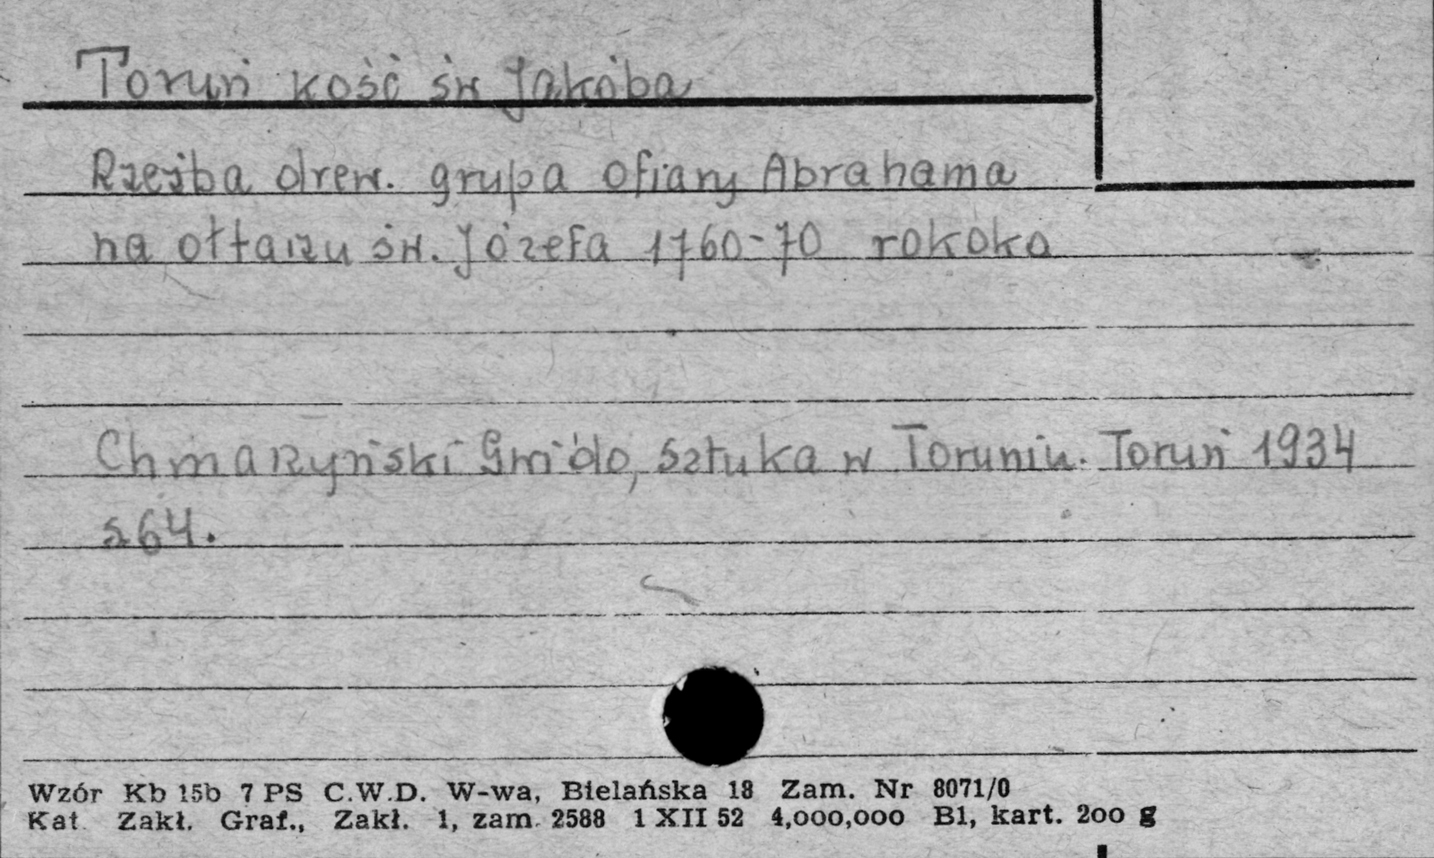 Toruń kość św Jakóba
Rzeźba drew. grupa ofiary Abrahama
na ołtarzu św. Józefa 1760-70 rokoko
Chmarzyński Gwido, Sztuka w Toruniu. Toruń 1934
s 64.
Wzór Kb 15b 7 PS C.W.D. W-wa, Bielańska 18 Zam. Nr 8071/0
Kat. Zakł. Graf., Zakł. 1, zam. 2588 1 XII 52 4,000,000 B1, kart. 200 g